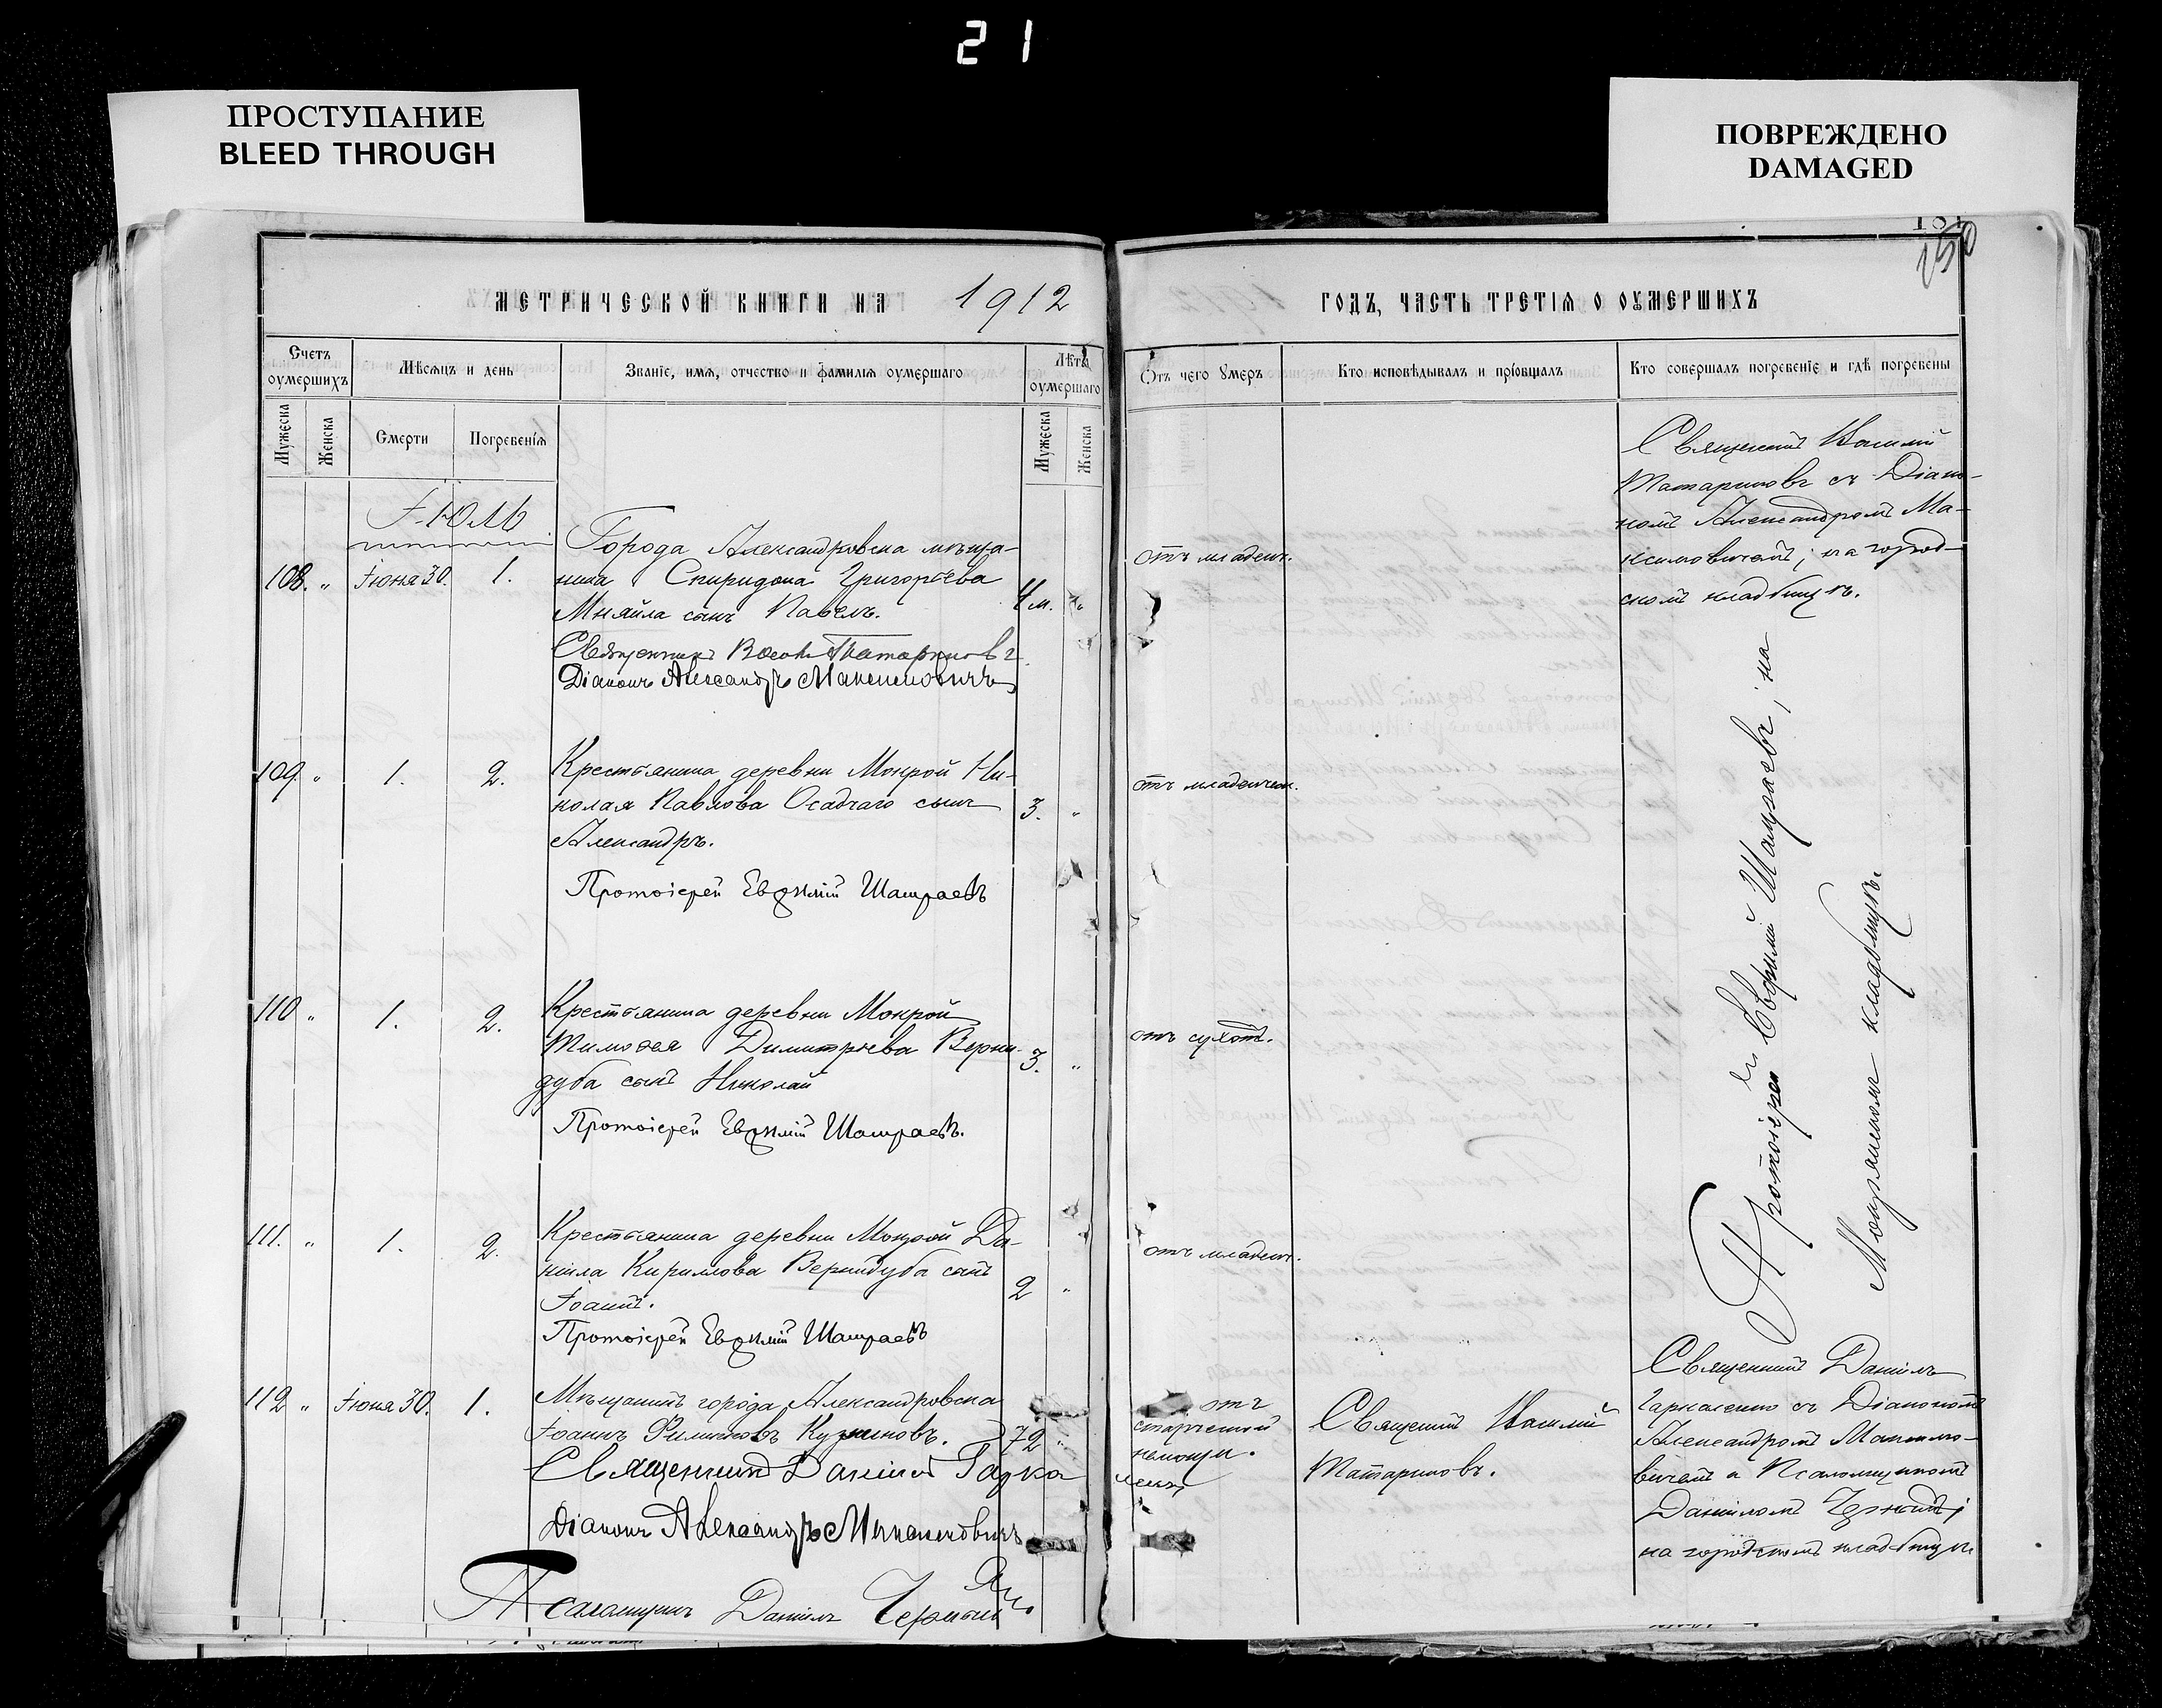 21
ПРОСТУПАНИЕ
BLEED THROUGH
ПОВРЕЖДЕНО
DAMAGED
181
150
МЕТРИЧЕСКОЙ КНИГИ НА 1912
ГОДЪ, ЧАСТЬ ТРЕТІЯ О ОУМЕРШИХЪ
Счетъ оумершихъ
Мѣсяцъ и день
Званіе, имя, отчество и фамилія оумершаго
Лѣта оумершаго
Мужеска
Женска
Смерти
Погребенія
Мужеска
Женска
Отъ чего Умеръ
Кто исповѣдывалъ и пріобщалъ
Кто совершалъ погребеніе и гдѣ погребены
Іюль
108. " Іюня 30. 1.
Города Александровска мѣща-
нина Спиридона Григорьева
Мняйла сынъ Павелъ.
4 м. "
отъ младен.
Священникъ Василій Татариновъ
Діаконъ Александръ Максимовичъ
Священникъ Василій
Татариновъ съ Діако-
номъ Александромъ Ма-
ксимовичемъ; на город-
скомъ кладбищѣ.
109. " 1. 2.
Крестьянина деревни Мокрой Ни-
колая Павлова Осадчаго сынъ
Александръ.
3. "
отъ младенчек.
Протоіерей Евфимій Шашраевъ
110 " 1. 2.
Крестьянина деревни Мокрой
Тимофея Димитріева Верни-
дуба сынъ Николай
3. "
отъ сухот.
Протоіерей Евфимій Шашраевъ.
111. " 1. 2.
Крестьянина деревни Мокрой Да-
ніила Кириллова Вернидуба сынъ
Іоаннъ.
2 "
отъ младен.
Протоіерей Евфимій Шашраевъ
Протоіерей Евфимій Шашраевъ; на
Мокрянскомъ кладбищѣ.
112 " Іюня 30. 1.
Мѣщанинъ города Александровска
Іоаннъ Филипповъ
72 "
отъ
старческой
немощи.
Священникъ Василій
Татариновъ.
Священникъ Даніилъ Гарка
ленко
Діаконъ Александръ Максимовичъ
Псаломщикъ Даніилъ Черный
Священникъ Даніилъ
Гаркаленко съ Діакономъ
Александромъ Максимо-
вичемъ и Псаломщикомъ
Даніиломъ Чернымъ;
на городскомъ кладбищѣ